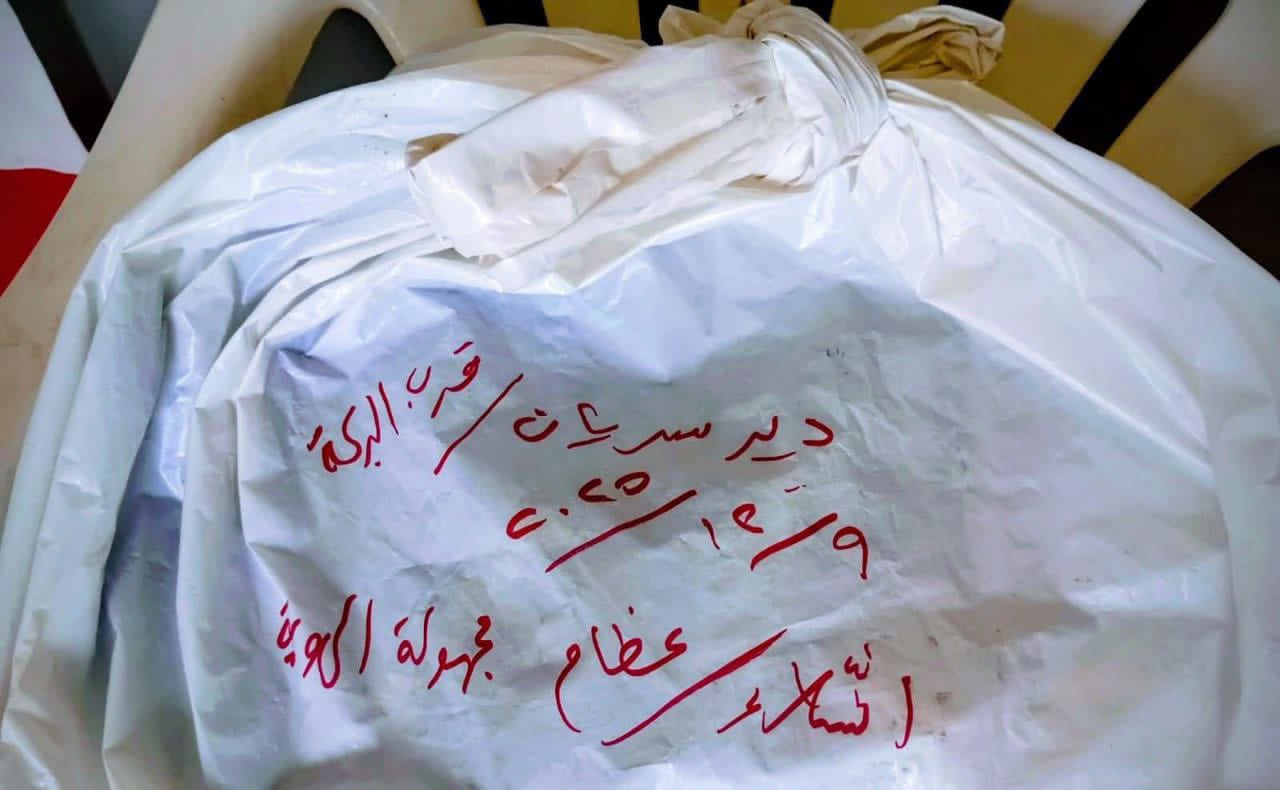 دير سريان / قرب البركة
٩ / ١٢ / ٢٠٢٥
اشلاء / عظام مجهولة الهوية